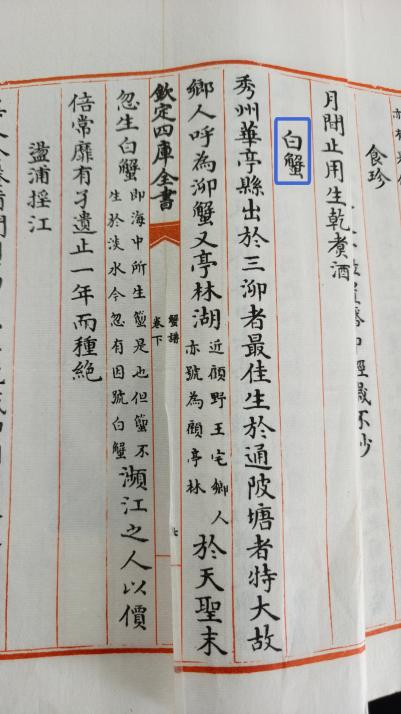 食珍
經歲不沙
月間止用生乾煑酒
白蟹
秀州華亭縣出於三泖者最佳生於通陂塘者特大故
鄉人呼為泖蟹又亭林湖
近顧野王宅鄉人
亦號為顧亭林
於天聖末
欽定四庫全書
蟹譜
卷下
七
忽生白蟹
即海中所生是也但不
生於淡水今忽有因號白蟹
瀕江之人以價
倍常靡有孑遺止一年而種絶
盪浦揺江